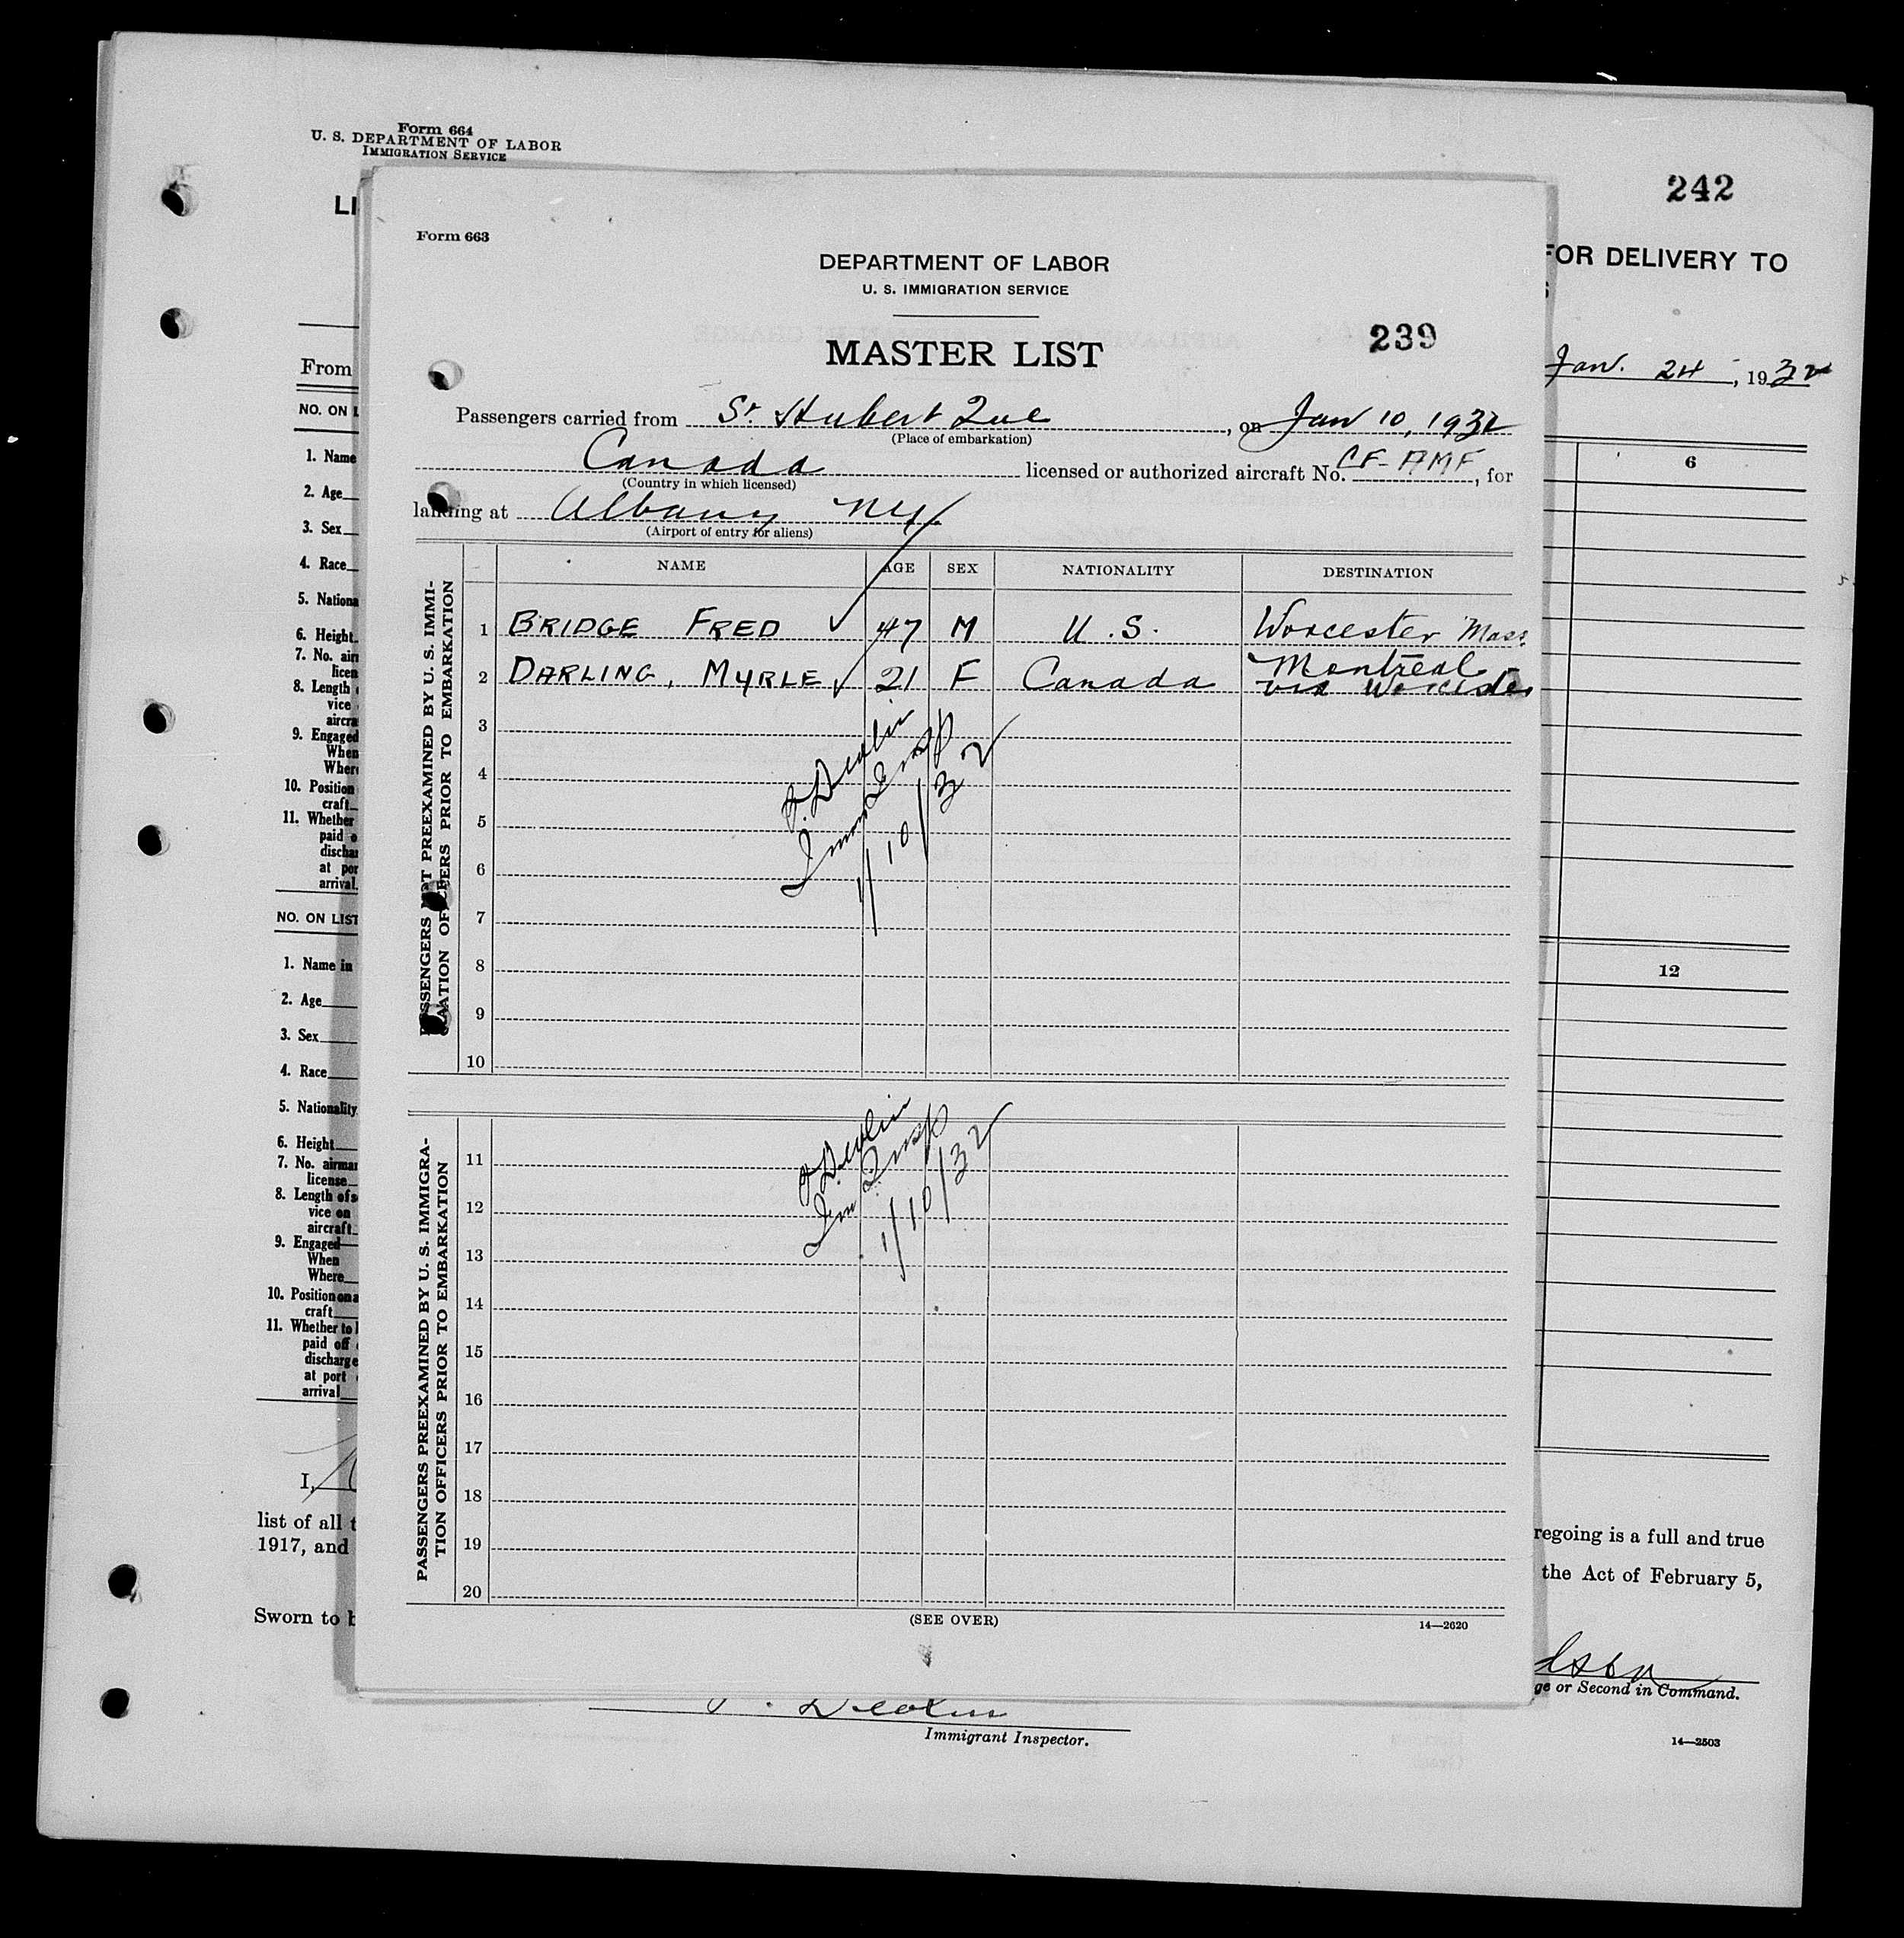 Form 664
U. S. DEPARTMENT OF LABOR
IMMIGRATION SERVICE
242
LI
FOR DELIVERY TO
S
From
Jan. 24, 1932
NO. ON L
6
1. Name
2. Age
3. Sex
4. Race
5. Nationa
6. Height
7. No. airm
licen
8. Length
vice
aircra
9. Engaged
When
Where
10. Position
craft
11. Whether
paid o
dischar
at por
arrival
NO. ON LIST
12
1. Name in
2. Age
3. Sex
4. Race
5. Nationality
6. Height
7. No. airman
license
8. Length of s
vice on
aircraft
9. Engaged—
When
Where
10. Position on a
craft
11. Whether to
paid off
discharge
at port
arrival
I,
list of all t
regoing is a full and true
1917, and
the Act of February 5,
Sworn to b
ge or Second in Command.
Immigrant Inspector.
14—2503
Form 663
DEPARTMENT OF LABOR
U. S. IMMIGRATION SERVICE
239
MASTER LIST
Passengers carried from St Hubert Que, on Jan 10, 1932
(Place of embarkation)
Canada licensed or authorized aircraft No. CF-AMF, for
(Country in which licensed)
landing at Albany NY
(Airport of entry for aliens)
NAME AGE SEX NATIONALITY DESTINATION
PASSENGERS NOT PREEXAMINED BY U. S. IMMI-
GRATION OFFICERS PRIOR TO EMBARKATION
1 BRIDGE FRED ✓ 47 M U.S. Worcester Mass.
2 DARLING, MYRLE ✓ 21 F Canada Montreal
via Worcester
3
4
5
6
7
8
9
10
Devlin
Imm Insp
1/10/32
PASSENGERS PREEXAMINED BY U. S. IMMIGRA-
TION OFFICERS PRIOR TO EMBARKATION
11
12
13
14
15
16
17
18
19
20
Devlin
Im Insp
1/10/32
(SEE OVER)
14—2620